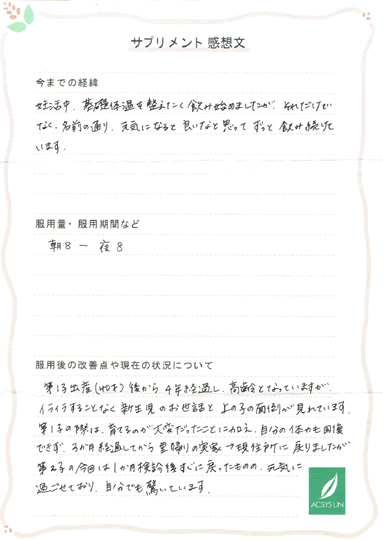 サプリメント 感想文
今までの経緯
妊活中、基礎体温を整えたく飲み始めましたが、それだけで
なく、名前の通り、元気になると良いなと思って ずっと 飲み続けて
います。
服用量・服用期間など
朝8 ー 夜8
服用後の改善点や現在の状況について
第1子出産(40才)後から 4年経過し、高齢となっていますが、
イライラすることなく 新生児のお世話と 上の子の面倒が見れています。
第1子の際は、育てるのが大変だったことに加え、自分の体力も回復
できず、3か月経過してから 里帰りの実家→現住所に 戻りましたが
第2子の今回は1か月検診後すぐに戻ったものの、元気に
過ごせており、自分でも驚いています。
ACSYSUN